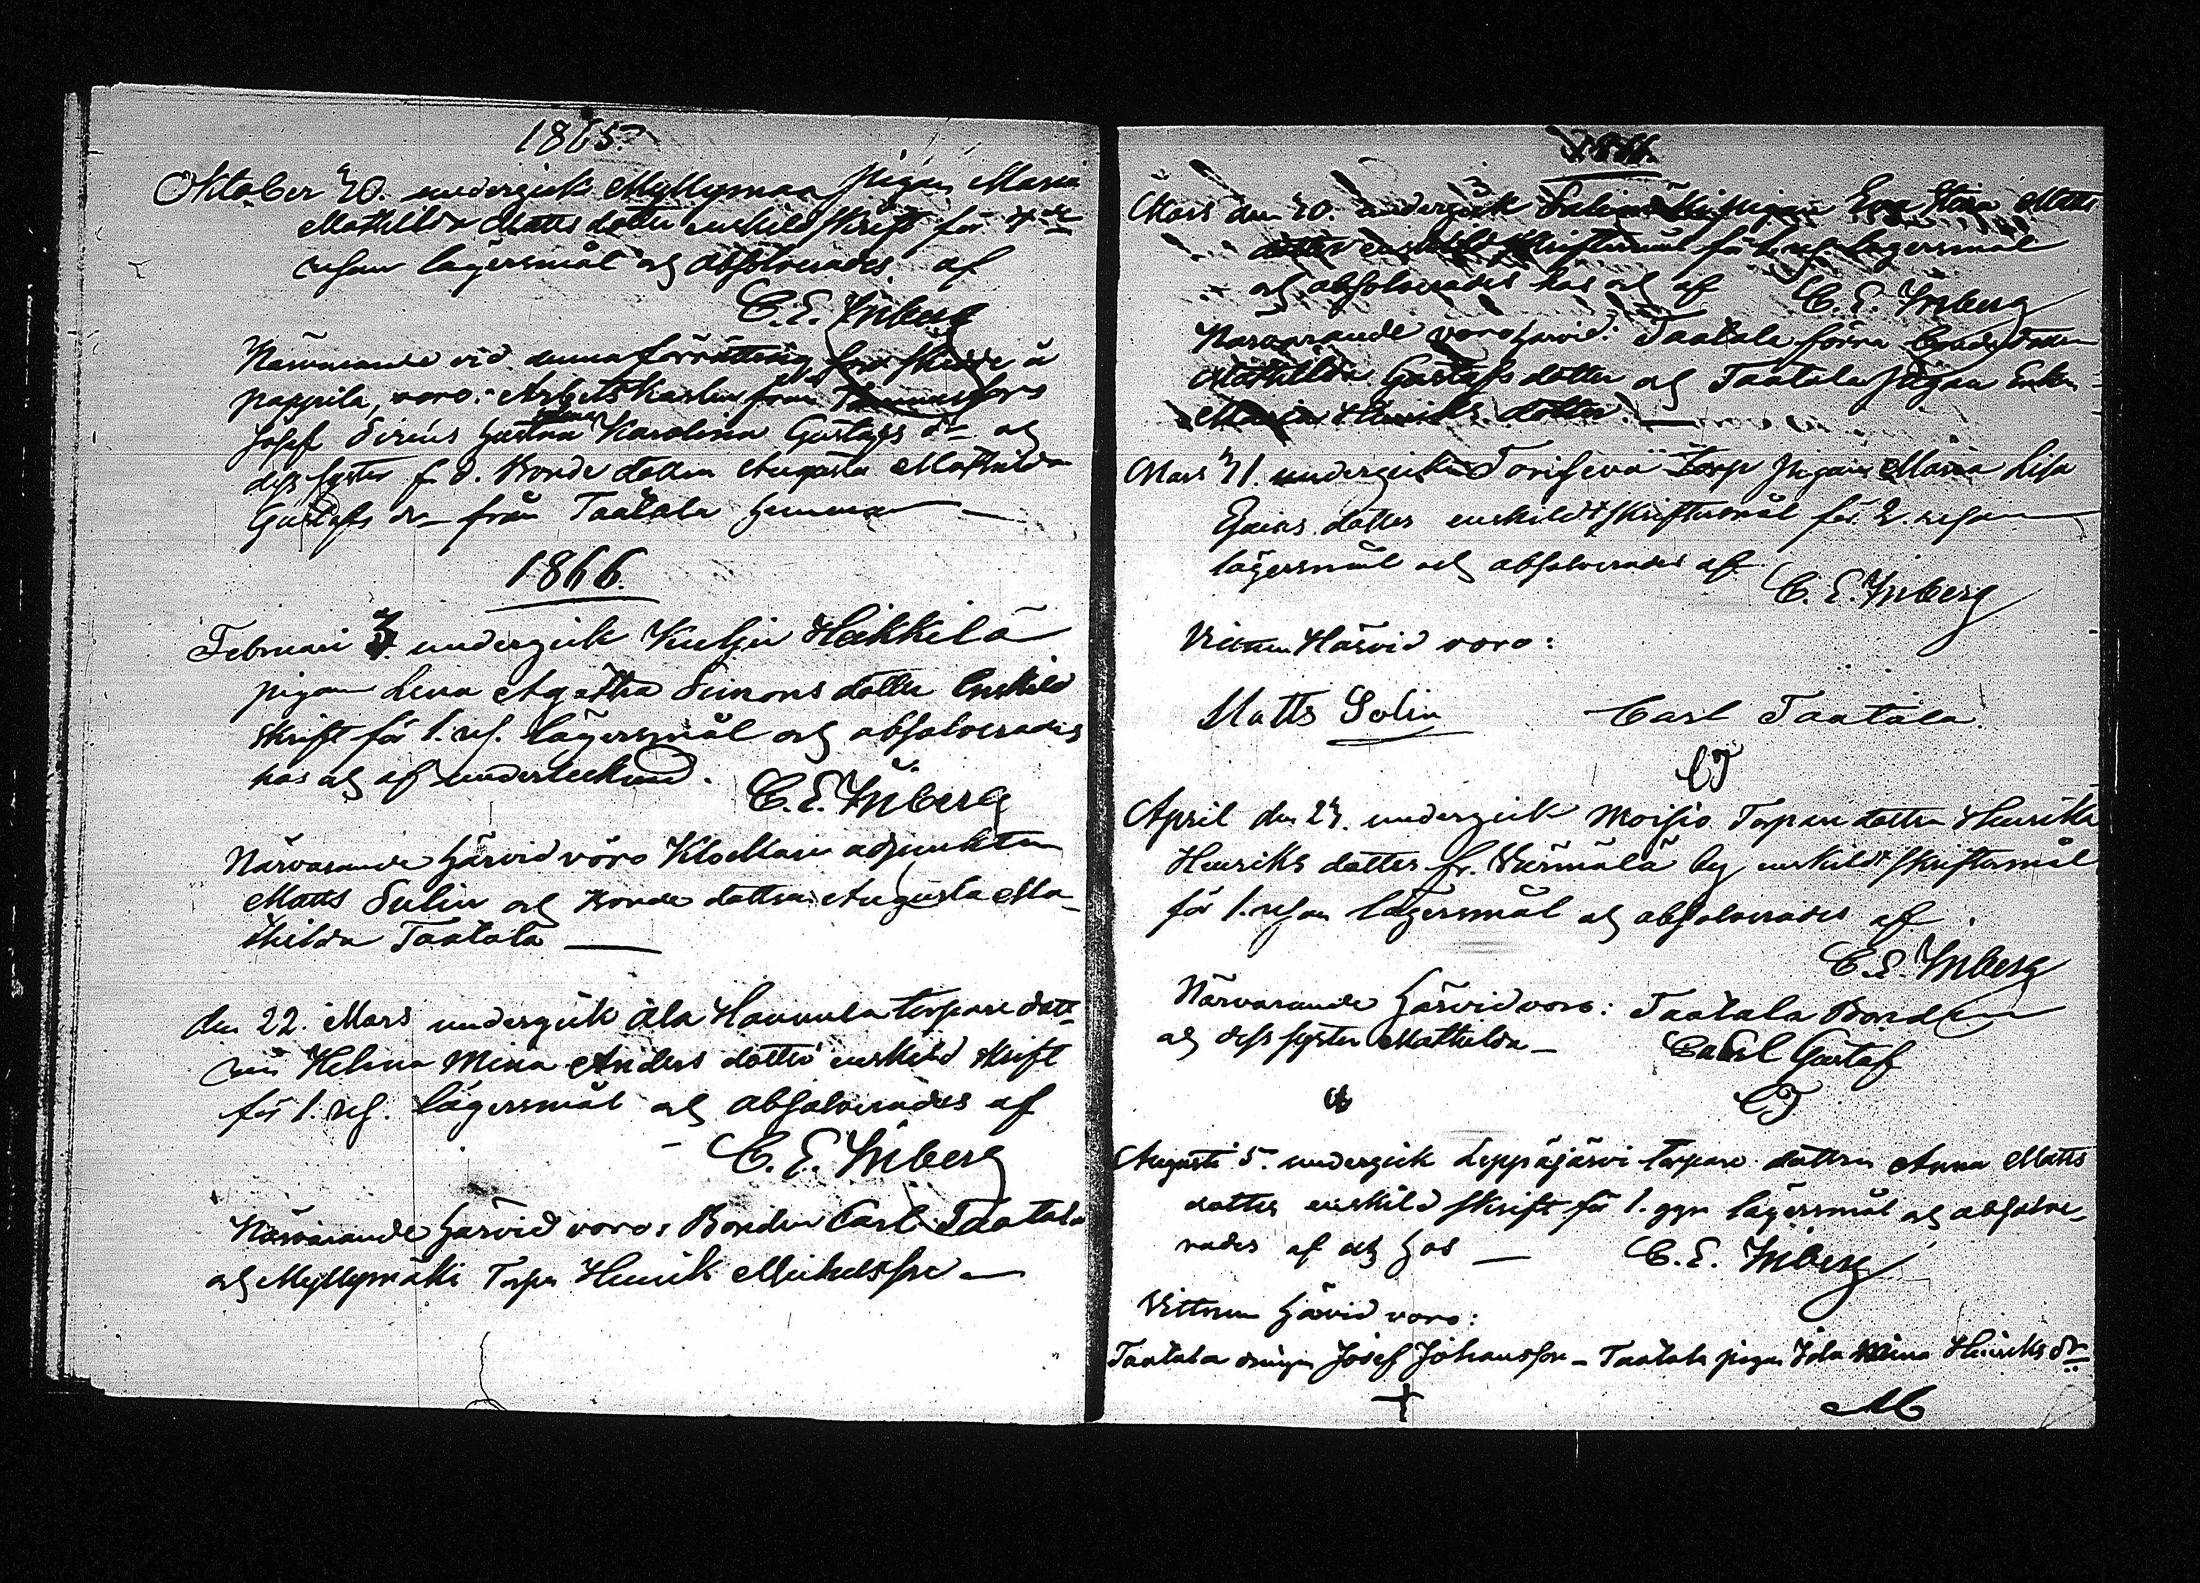 1865.
Oktober 20. undergick Myllymaa pigan Maria
Mathilda Matts dotter enskild skrift för 4de
resan lägersmål och absolverades af
C. E. Inberg
Närvarande vid denna förrättning å
pappila, voro: Arbets Karlen från
Josef hustru Karolina Gustafs dr och
dess syster f. d. Bonde dottren Augusta Mathilda
Gustafs dr från Taatala hemman
1866.
Februari 3. undergick Heikkilä
pigan Lena Agatha Simons dotter Enskild
skrift för 1. rs. lägersmål och absolverades
här och af undertecknad.
C. E. Inberg
Närvarande härvid voro Klockare adjunkten
Matts Sulin och Bonde dottren Augusta Ma-
thilda Taatala
den 22. Mars undergick Ala Hannula torpare dott-
ren Helena Mina Anders dotter enskild skrift
för 1. rs. lägersmål och absolverades af
C. E. Inberg
Närvarande härvid voro: Bonden Carl Taatala
och Myllymäki Torp. Henrik Michelsson
1866.
Mars den 20. undergick pigan Eva Stina Matts
dotter enskildt skriftermål för lägersmål
och absolverades här och af C. E. Inberg
Närvarande voro härvid: Taatala förra Bonde dottren
Mathilda Gustafs dotter och Taatala pigan
Maria Henriks dotter.
Mars 21. undergick Torp pigan Maria Lisa
Esaias dotter enskildt skriftermål för 2. resan
lägersmål och absolverades af
C. E. Inberg
Vittnen Härvid voro:
Matts Solin Carl Taatala
CT
April den 27. undergick Moisio Torpare dottren Henrika
Henriks dotter fr. by enskildt skriftermål
för 1. resan lägersmål och absolverades af
C. E. Inberg
Närvarande härvid voro: Taatala Bonden
och dess syster Mathilda Carl Gustaf
CT
Augusti 5. undergick Leppäjärvi torpare dottren Anna Matts
dotter enskild skrift för 1. ggn lägersmål och absolve-
rades af och hos C. E. Inberg
Vittnen härvid voro:
Taatala drängen Josef Johansson – Taatala pigan Ida Mina Henriks dr